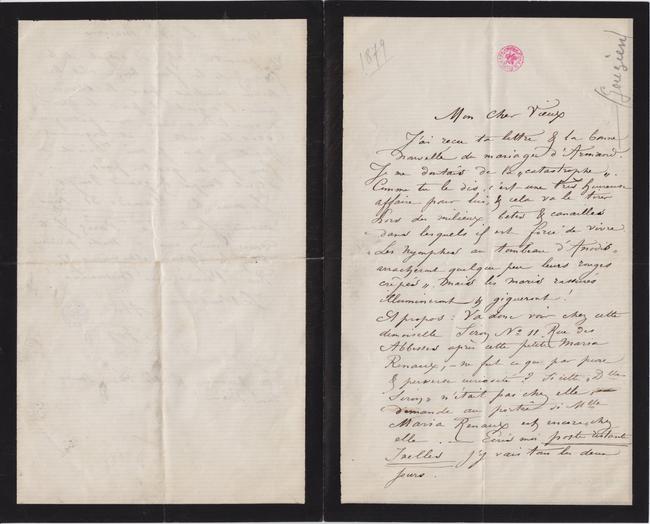 1879
Gouzien
Mon cher Vieux
J'ai reçu ta lettre & la bonne
nouvelle du mariage d'Armand.
Je me doutais de la "catastrophe".
Comme tu le dis, c'est une très heureuse
affaire pour lui, & cela va le tirer
hors des milieux bêtes & canailles
dans lesquels il est forcé de vivre
Les Nymphes au tombeau d'Adonis
arracheront quelque peu leurs rouges
crépés", mais les maris rassurés
illumineront & gigueront!
A propos: Va donc voir chez cette
demoiselle N° 11 Rue des
Abbesses après cette petite Maria
Renaux, – ne fut ce que par pure
& perverse curiosité? Si cette Dlle
n'était pas chez elle
demande au portier si Mlle
Maria Renaux est encore chez
elle. – Ecris moi poste restante
Ixelles j'y vais tous les deux
jours.